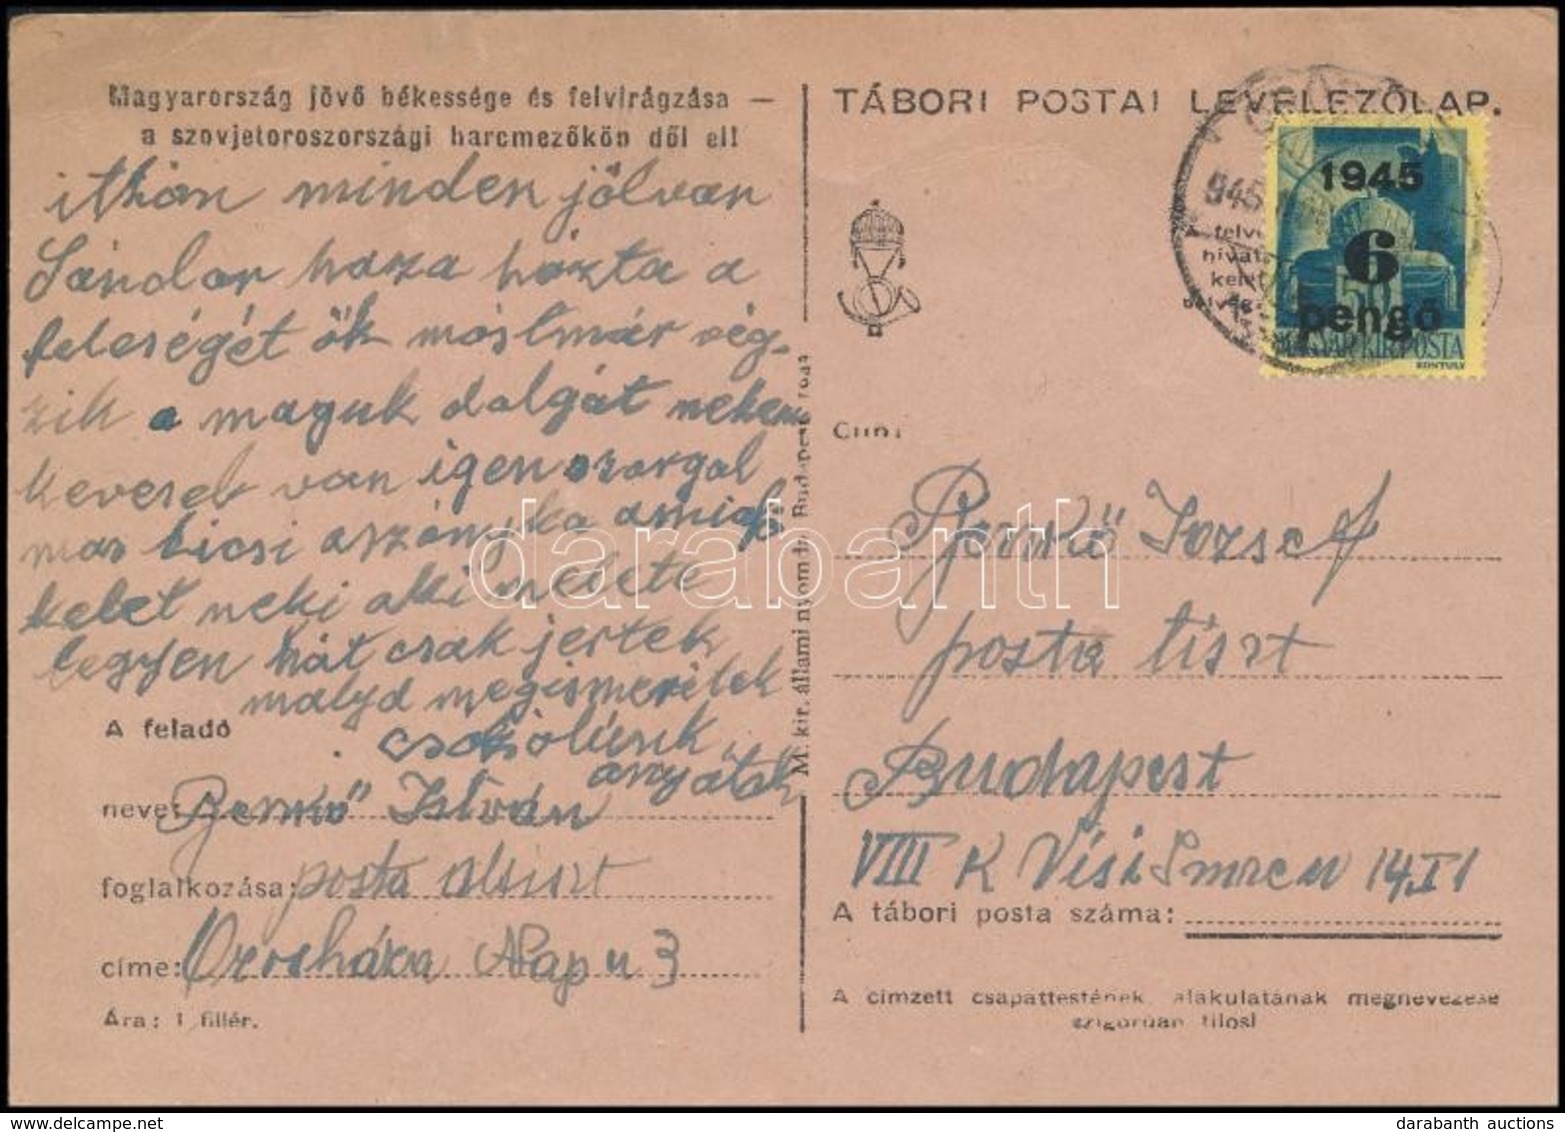 Magyarország jövő békessége és felvirágzása —
a szovjetoroszországi harcmezőkön dől el!
itthon minden jólvan
Sándor haza hozta a
feleségét ők mostmár vég-
zik a maguk dolgát nekem
keveseb van igen szorgal
mas kicsi aszonyka amiak
kelet neki aki melete
legyen hát csak jertek
malyd megismeritek
csokolunk
anyátok
A feladó
neve: Bernkő István
foglalkozása: posta altiszt
címe: Orosháza Nap u 3
Ára: 1 fillér.
M. kir. állami nyomda. Budapest
TÁBORI POSTAI LEVELEZŐLAP.
945
1945
6
pengő
50
MAGYAR KIR. POSTA
KONTULY
Cím:
József
posta tiszt
Budapest
VIII K Vísi Imre u 14, I 1
A tábori posta száma:
A címzett csapattestének, alakulatának megnevezése
szigorúan tilos!
darabanth
darabanth auctions